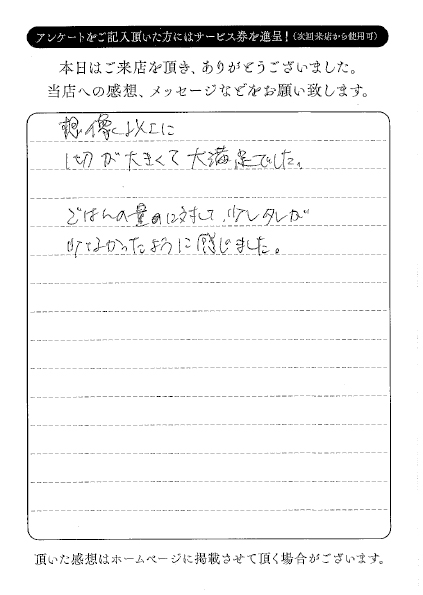 アンケートをご記入頂いた方にはサービス券を進呈!(次回来店から使用可)
本日はご来店を頂き、ありがとうございました。
当店への感想、メッセージなどをお願い致します。
想像以上に
1切が大きくて大満足でした。
ごはんの量に対して、少しタレが
少なかったように感じました。
頂いた感想はホームページに掲載させて頂く場合がございます。